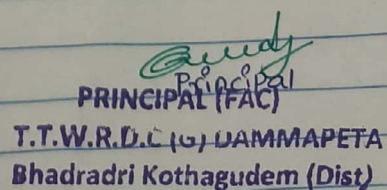 Principal
PRINCIPAL (FAC)
T.T.W.R.D.C (G) DAMMAPETA
Bhadradri Kothagudem (Dist)